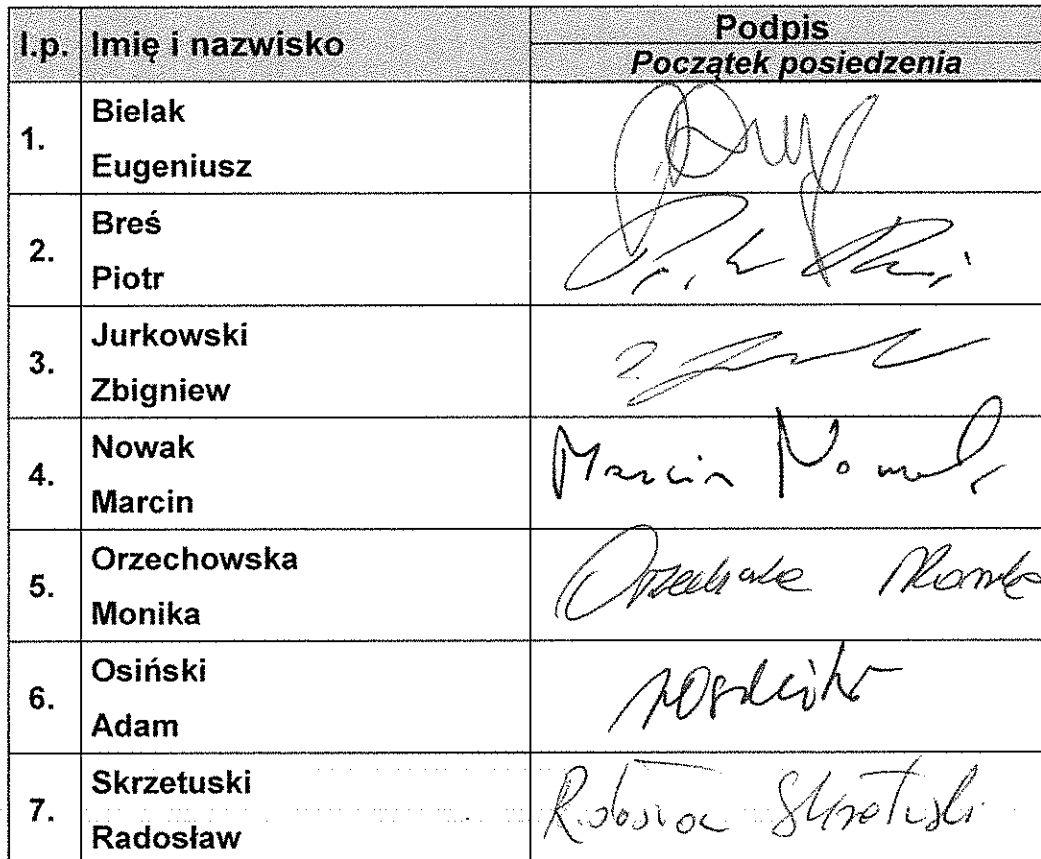 l.p. Imię i nazwisko Podpis
Początek posiedzenia
1. Bielak
Eugeniusz
2. Breś
Piotr
3. Jurkowski
Zbigniew
4. Nowak
Marcin
Marcin Nowak
5. Orzechowska
Monika
Orzechowska Monika
6. Osiński
Adam
7. Skrzetuski
Radosław
Radosław Skrzetuski